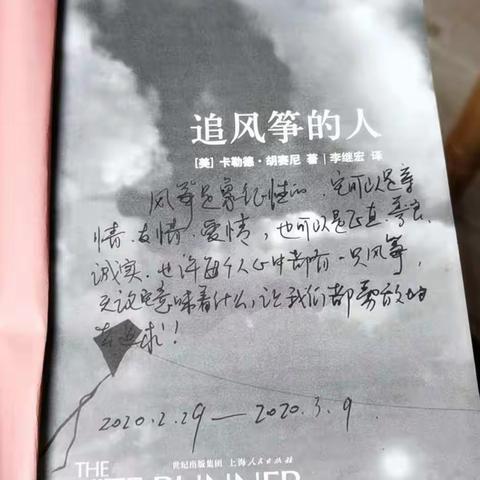 追风筝的人
[美] 卡勒德·胡赛尼 著 | 李继宏 译
风筝是象征性的,它可以是亲
情、友情、爱情,也可以是正直、善良、
诚实。也许每个人心中都有一只风筝,
无论它意味着什么,让我们都勇敢的
去追求!
2020.2.29—2020.3.9.
世纪出版集团 上海人民出版社
THE
KITE RUNNER